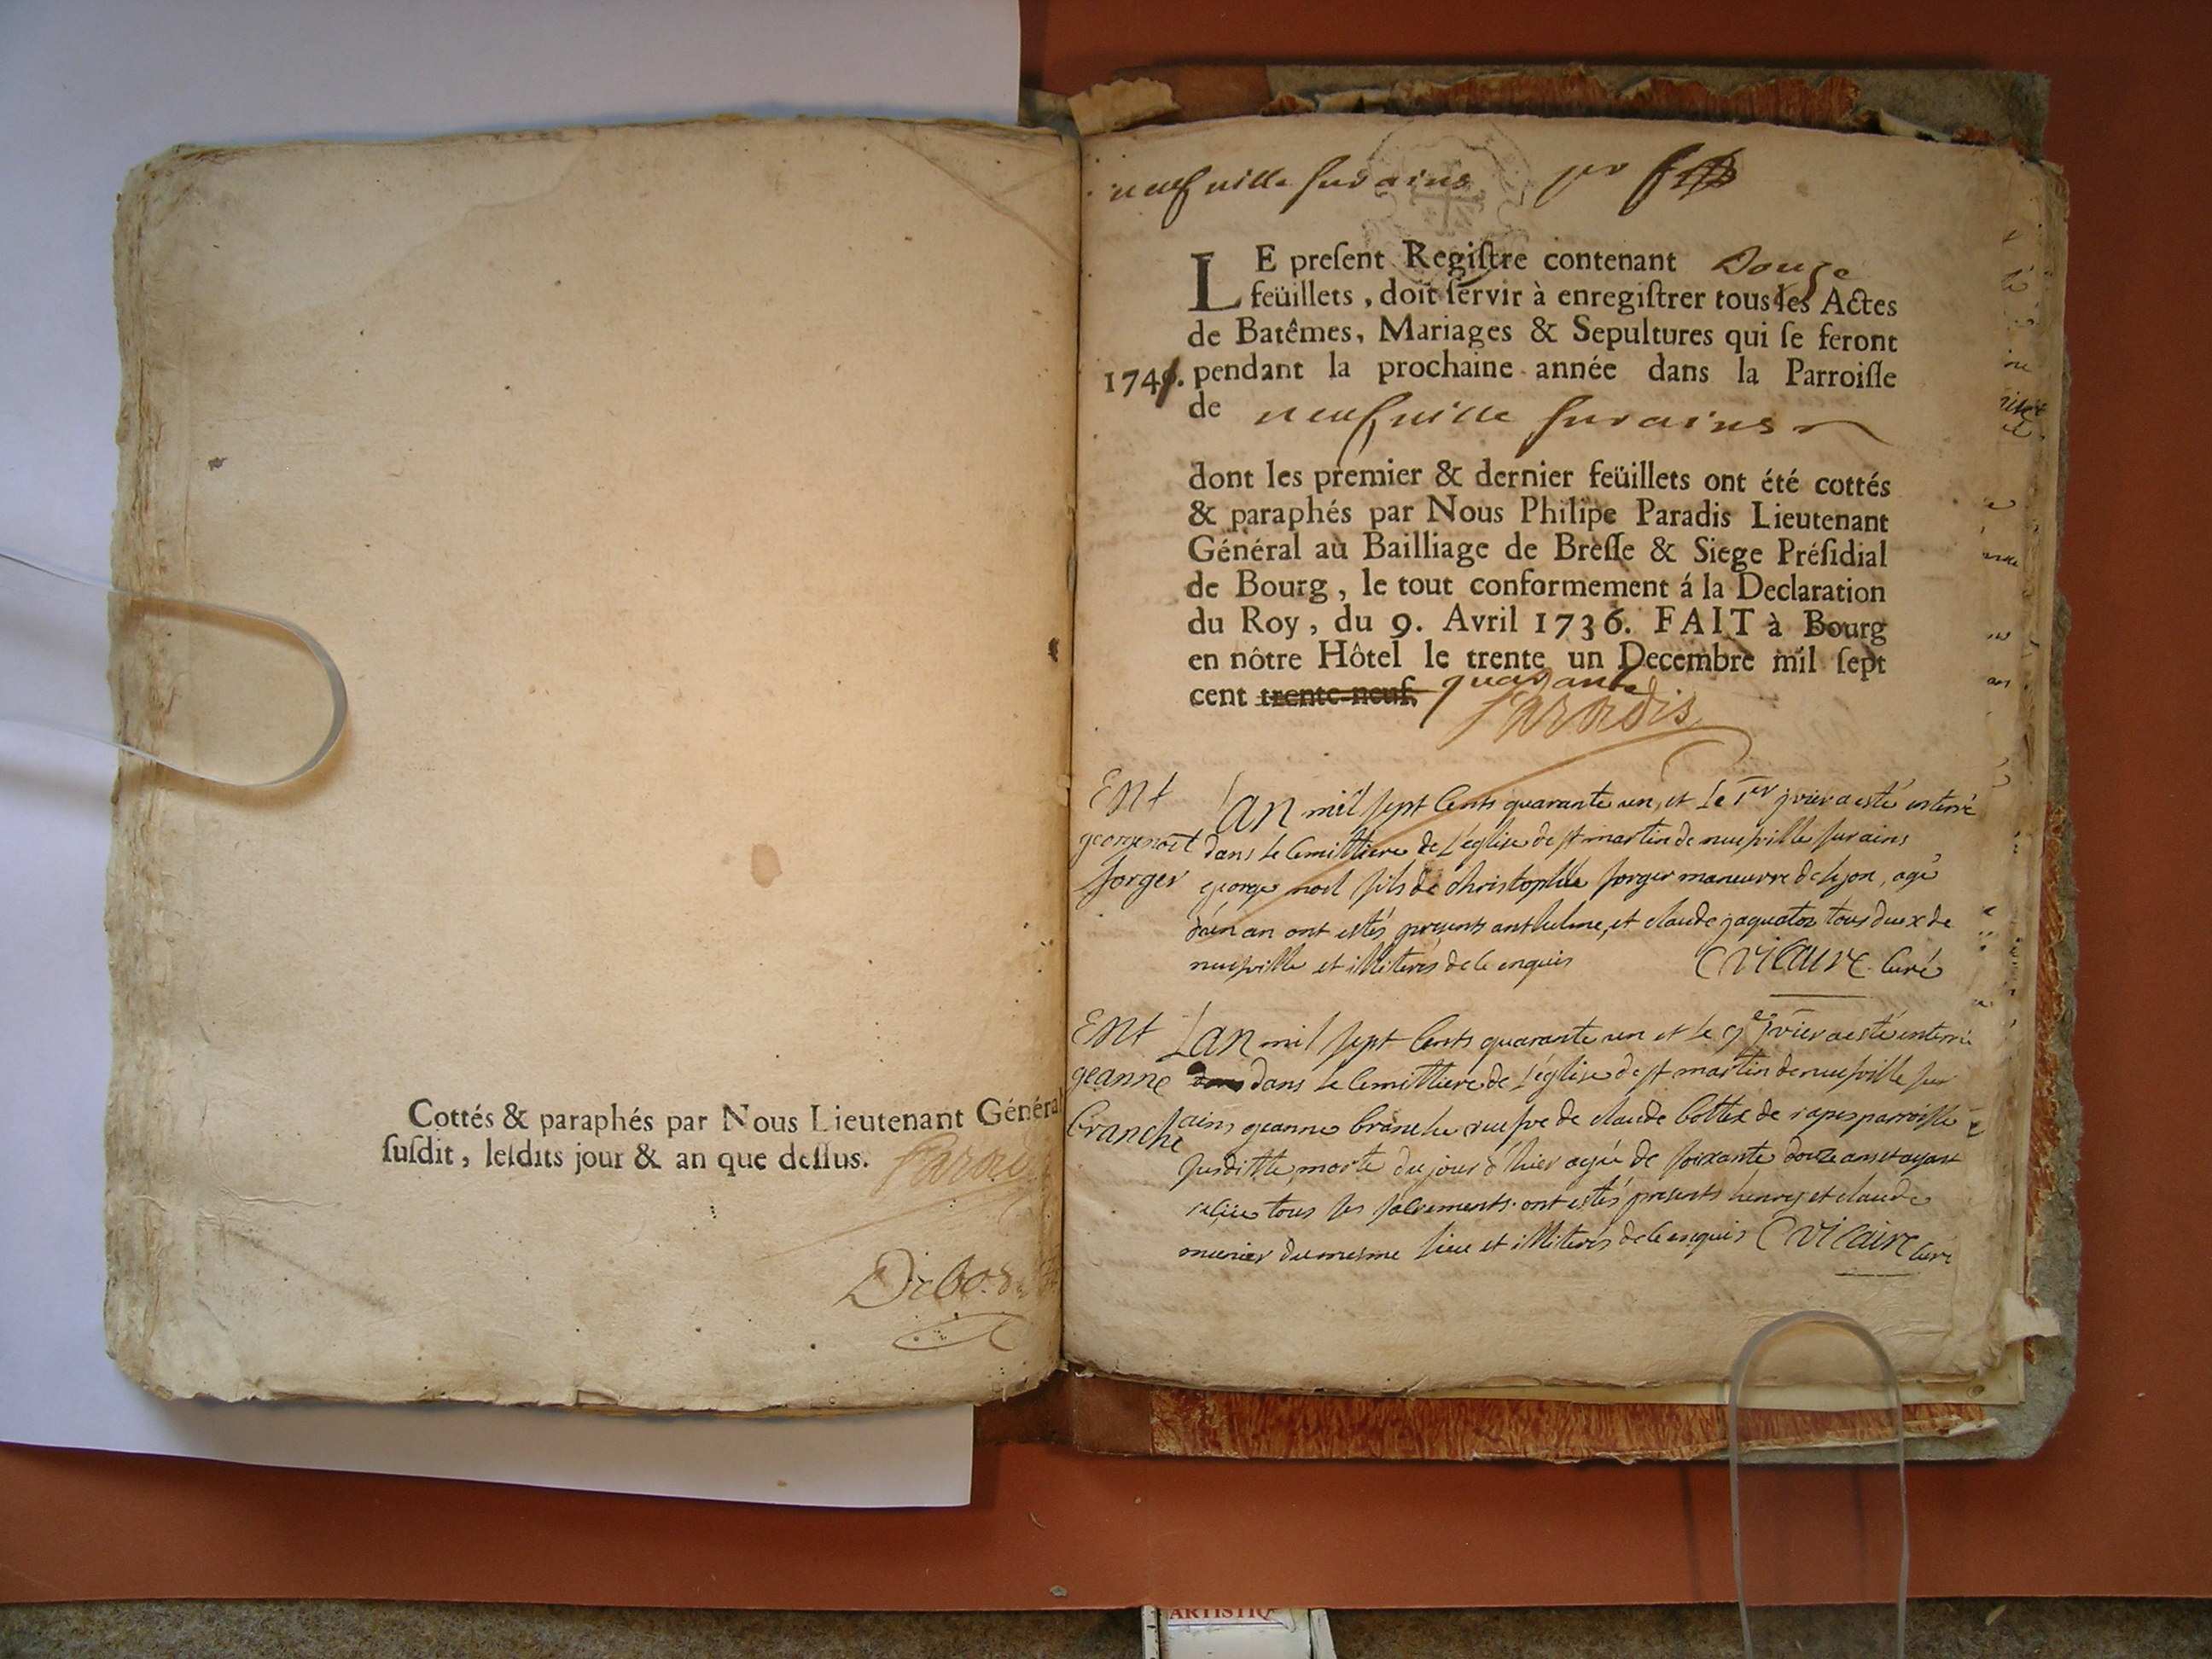 Cottés & paraphés par Nous Lieutenant Général
ſuſdit, leſdits jour & an que deſſus.
neufville sur ains
LE preſent Regiſtre contenant Douze
feüillets, doit ſervir à enregiſtrer tous les Actes
de Batêmes, Mariages & Sepultures qui ſe feront
1741. pendant la prochaine année dans la Parroiſſe
de neufville sur ains
dont les premier & dernier feüillets ont été cottés
& paraphés par Nous Philipe Paradis Lieutenant
Général au Bailliage de Breſſe & Siege Préſidial
de Bourg, le tout conformement á la Declaration
du Roy, du 9. Avril 1736. FAIT à Bourg
en nôtre Hôtel le trente un Decembre mil ſept
cent trente-neuf, quarante
Paradis
Ent
george noel
forger
Lan mil sept Cents quarante un, et Le 1er jvier a esté enterré
dans le Cemittiere de L'eglise de st martin de neufville sur ains
george noel fils de christophle forger maneuvre de lyon, agé
d'un an ont estés presents anthelme, et claude jaquatos tous deux de
neufville et illiterés de ce enquis C vicaire Curé
Ent
geanne
branche
Lan mil sept Cents quarante un et le 9e jvier a esté enterré
dans le Cemittiere de L'église de st martin de neufville sur
ains geanne branche veufve de claude bottex de rapes parroisse
susditte, morte du jour d'hier agée de soixante douze ans et ayant
reçüe tous ses sacrements. ont estés presents henry et claude
munier du mesme lieu et illiterés de ce enquis C vicaire Curé